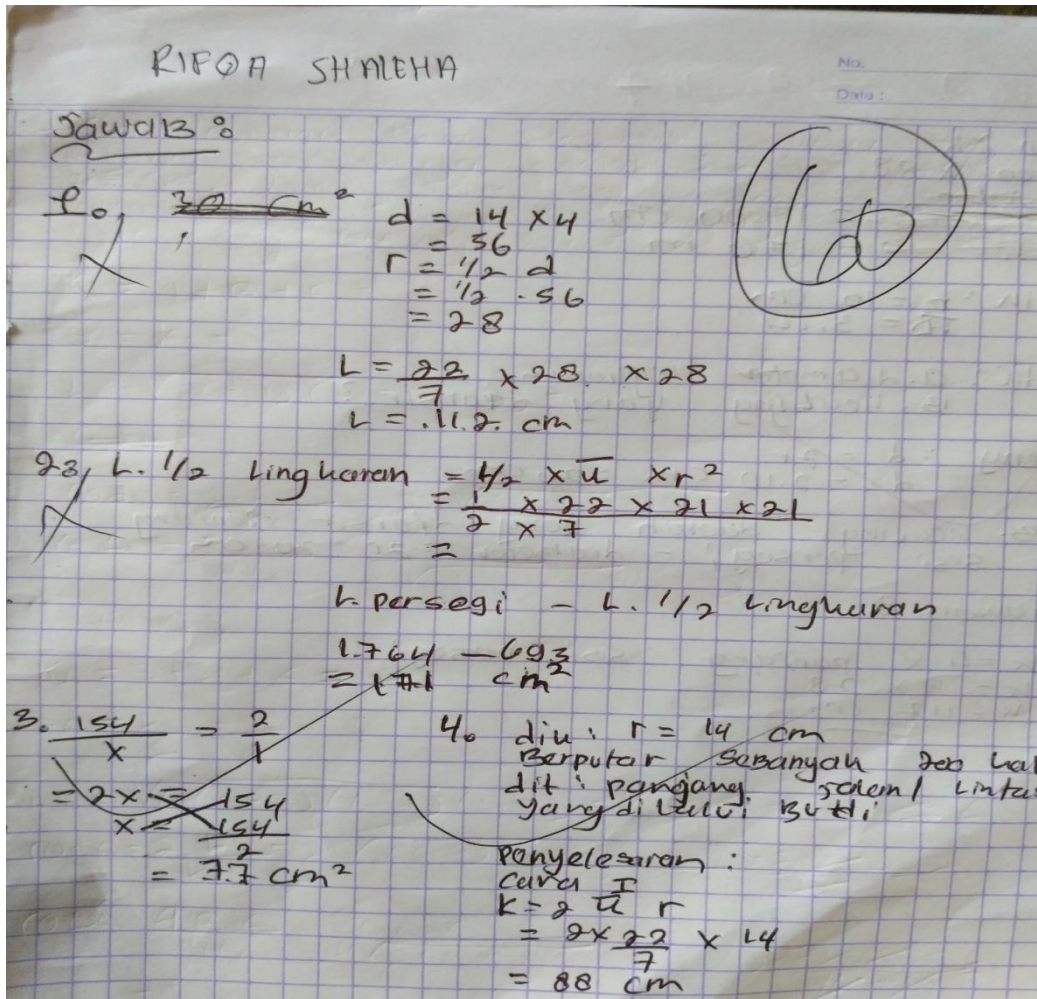 RIFQA SHALEHA
No.
Date :
Jawab :
1. 30 cm²
d = 14 x 4
= 56
r = 1/2 d
= 1/2 . 56
= 28
L = 22/7 x 28 x 28
L = .11.2. cm
60
23, L. 1/2 Lingkaran = 1/2 x π x r²
= 1 x 22 x 21 x 21
2 x 7
=
L. persegi - L. 1/2 Lingkaran
1.764 - 693
= 1771 cm²
3. 154/x = 2/1
= 2x = 154
x = 154/2
= 77 cm²
4. dik : r = 14 cm
Berputar Sebanyak 200 kal
dit : pangang linta
yang di lalui Budi
penyelesaian :
cara I
K = 2 π r
= 2 x 22/7 x 14
= 88 cm